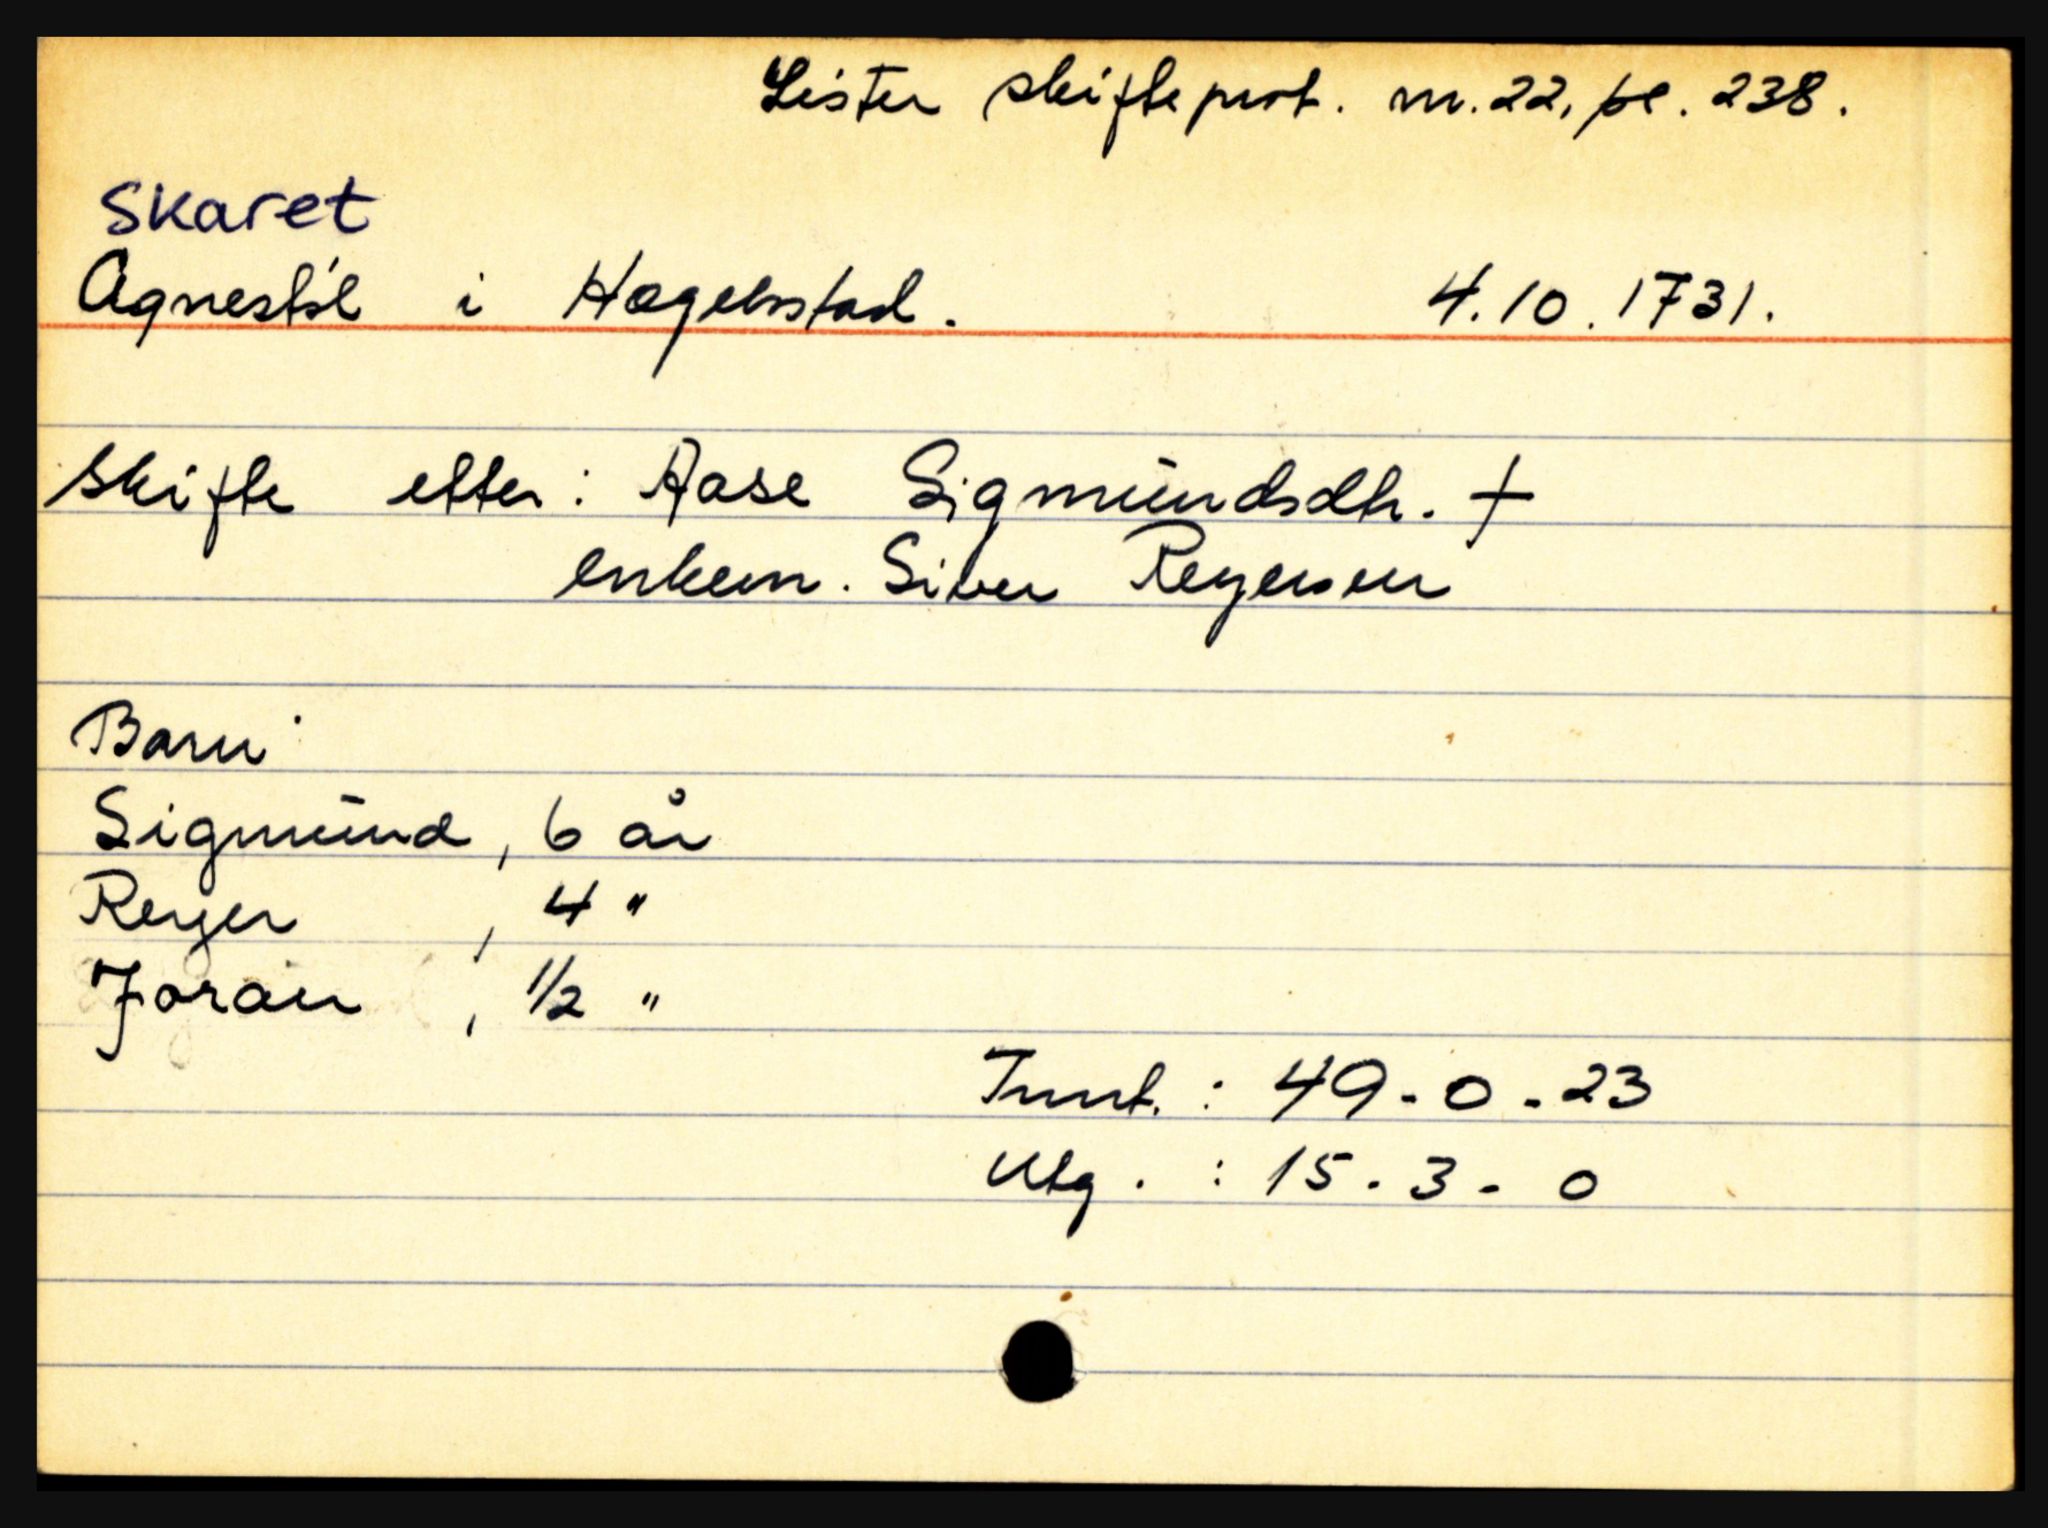 Lister skifteprot. nr. 22, pl. 238.
Skaret
Agnestøl i Hægebostad. 4.10.1731.
Skifte etter: Aase Sigmundsdtr. +
enkem. Siver Reyersen
Barn:
Sigmund, 6 år
Reyer, 4 "
Joran, 1/2 "
Innt. : 49 - 0 - 23
Utg. : 15 - 3 - 0